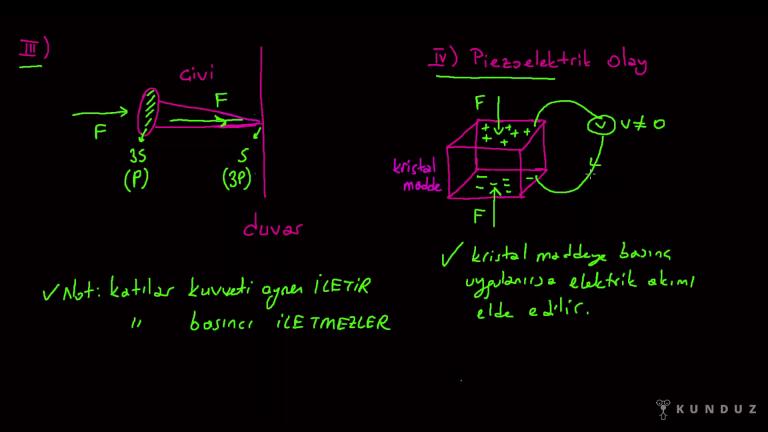 III)
çivi
F
F
3S
(P)
S
(3P)
duvar
✓ Not: katılar kuvveti aynen İLETİR
" basıncı İLETMEZLER
IV) Piezoelektrik Olay
F
+ + + + + +
V
V ≠ 0
kristal
madde
- - - - - -
F
✓ kristal maddeye basınç
uygulanırsa elektrik akımı
elde edilir.
KUNDUZ